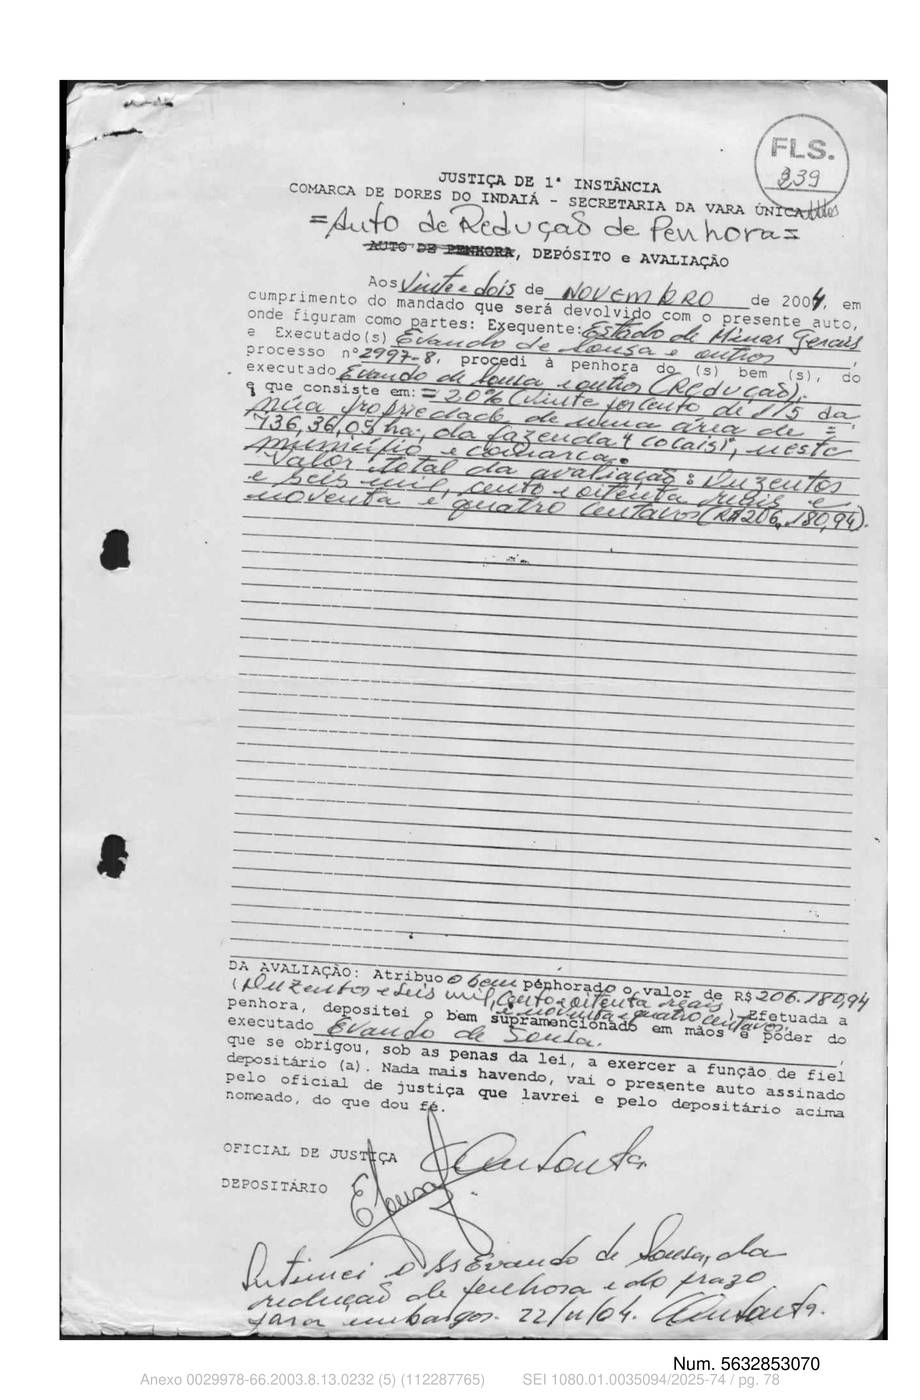 FLS.
339
JUSTIÇA DE 1ª INSTÂNCIA
COMARCA DE DORES DO INDAIÁ - SECRETARIA DA VARA ÚNICA
=Auto de Redução de Penhora=
AUTO DE PENHORA, DEPÓSITO e AVALIAÇÃO
Aos Vinte e dois de NOVEMBRO de 2004, em
cumprimento do mandado que será devolvido com o presente auto,
onde figuram como partes: Exequente: Estado de Minas Gerais
e Executado(s) Evando de Sousa e outros,
processo nº 2997-8, procedi à penhora do (s) bem (s), do
executado Evando de Sousa e outros (Redução).
e que consiste em: = 20% (vinte por cento de 1/5 da
núa propriedade de uma área de =
736,36,05 ha, da fazenda "Cocais", neste
município e comarca.
Valor total da avaliação: Duzentos
e seis mil, cento e oitenta reais e
noventa e quatro centavos (R$206.180,94).
DA AVALIAÇÃO: Atribuo o bem penhorado o valor de R$ 206.180,94
(Duzentos e seis mil, cento e oitenta reais
e noventa e quatro centavos). Efetuada a
penhora, depositei o bem supramencionado em mãos e poder do
executado Evando de Sousa.,
que se obrigou, sob as penas da lei, a exercer a função de fiel
depositário (a). Nada mais havendo, vai o presente auto assinado
pelo oficial de justiça que lavrei e pelo depositário acima
nomeado, do que dou fé.
OFICIAL DE JUSTIÇA
DEPOSITÁRIO ESousa
Intimei o Sr Evando de Sousa, da
redução de penhora e do prazo
para embargos. 22/11/04.
Num. 5632853070
Anexo 0029978-66.2003.8.13.0232 (5) (112287765) SEI 1080.01.0035094/2025-74 / pg. 78